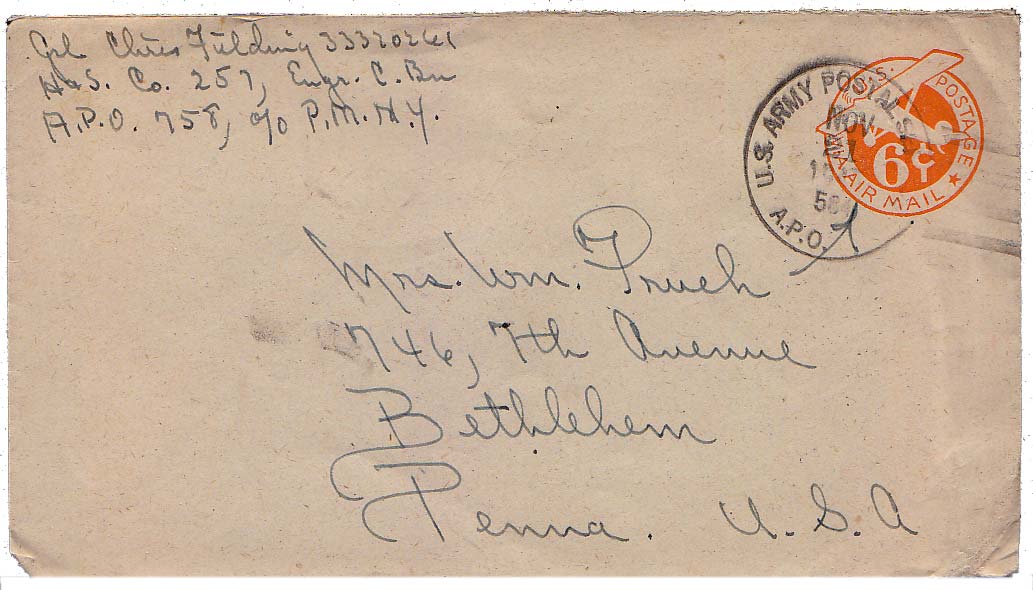 Cpl Chris Fulding 33320261
H & S. Co. 257, Engr. C. Bn
A.P.O. 758, c/o P.M. N.Y.
U.S. ARMY POSTAL S
NOV
A.P.O.
U.S. POSTAGE
VIA AIR MAIL
6¢
Mrs. Wm. Frueh
746, 7th Avenue
Bethlehem
Penna. U.S.A